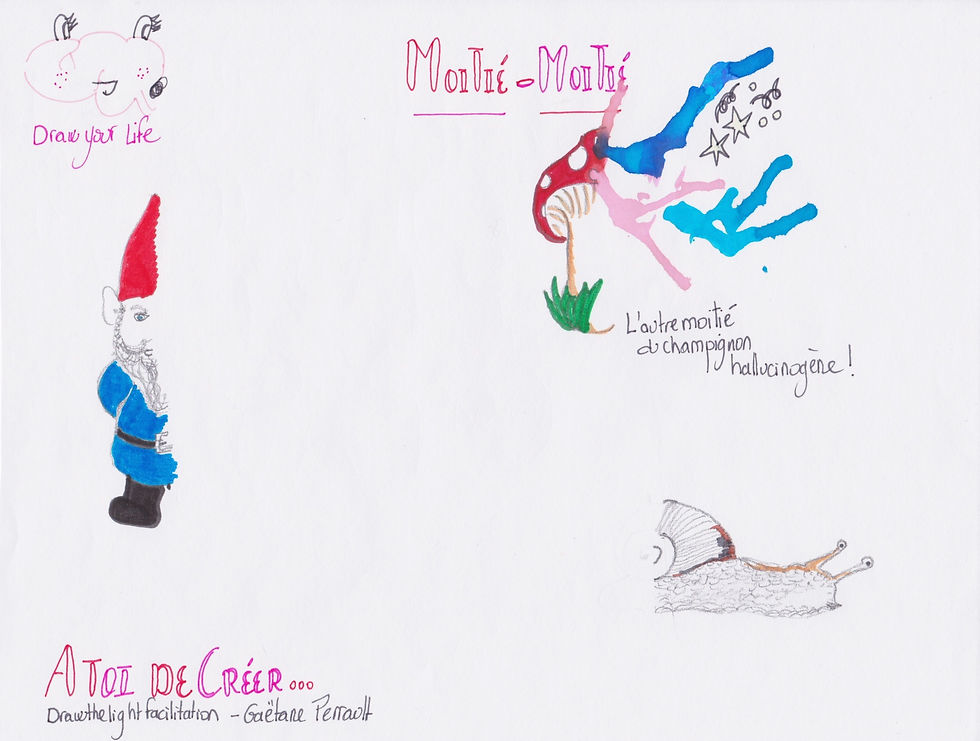 Draw your Life
Moitié-Moitié
L'autre moitié
du champignon
hallucinogène !
A Toi DE CRÉER...
Drawthelight facilitation - Gaëtane Perrault